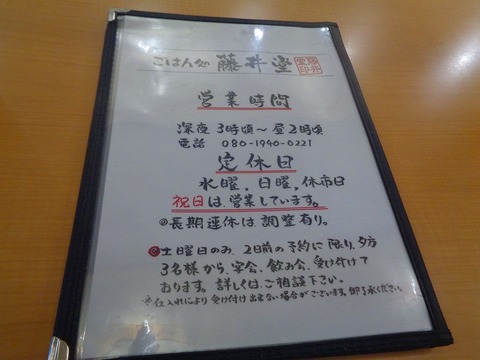 ごはん処 藤井堂
藤井堂印
営業時間
深夜 3時頃～昼2時頃
電話 080-1940-0221
定休日
水曜、日曜、休市日
祝日は営業しています。
◎長期連休は調整有り。
◎土曜日のみ、2日前の予約に限り、夕方
3名様から、宴会、飲み会、受け付けて
おります。詳しくはご相談下さい。
※仕入れにより受け付け出来ない場合がございます。御了承ください。